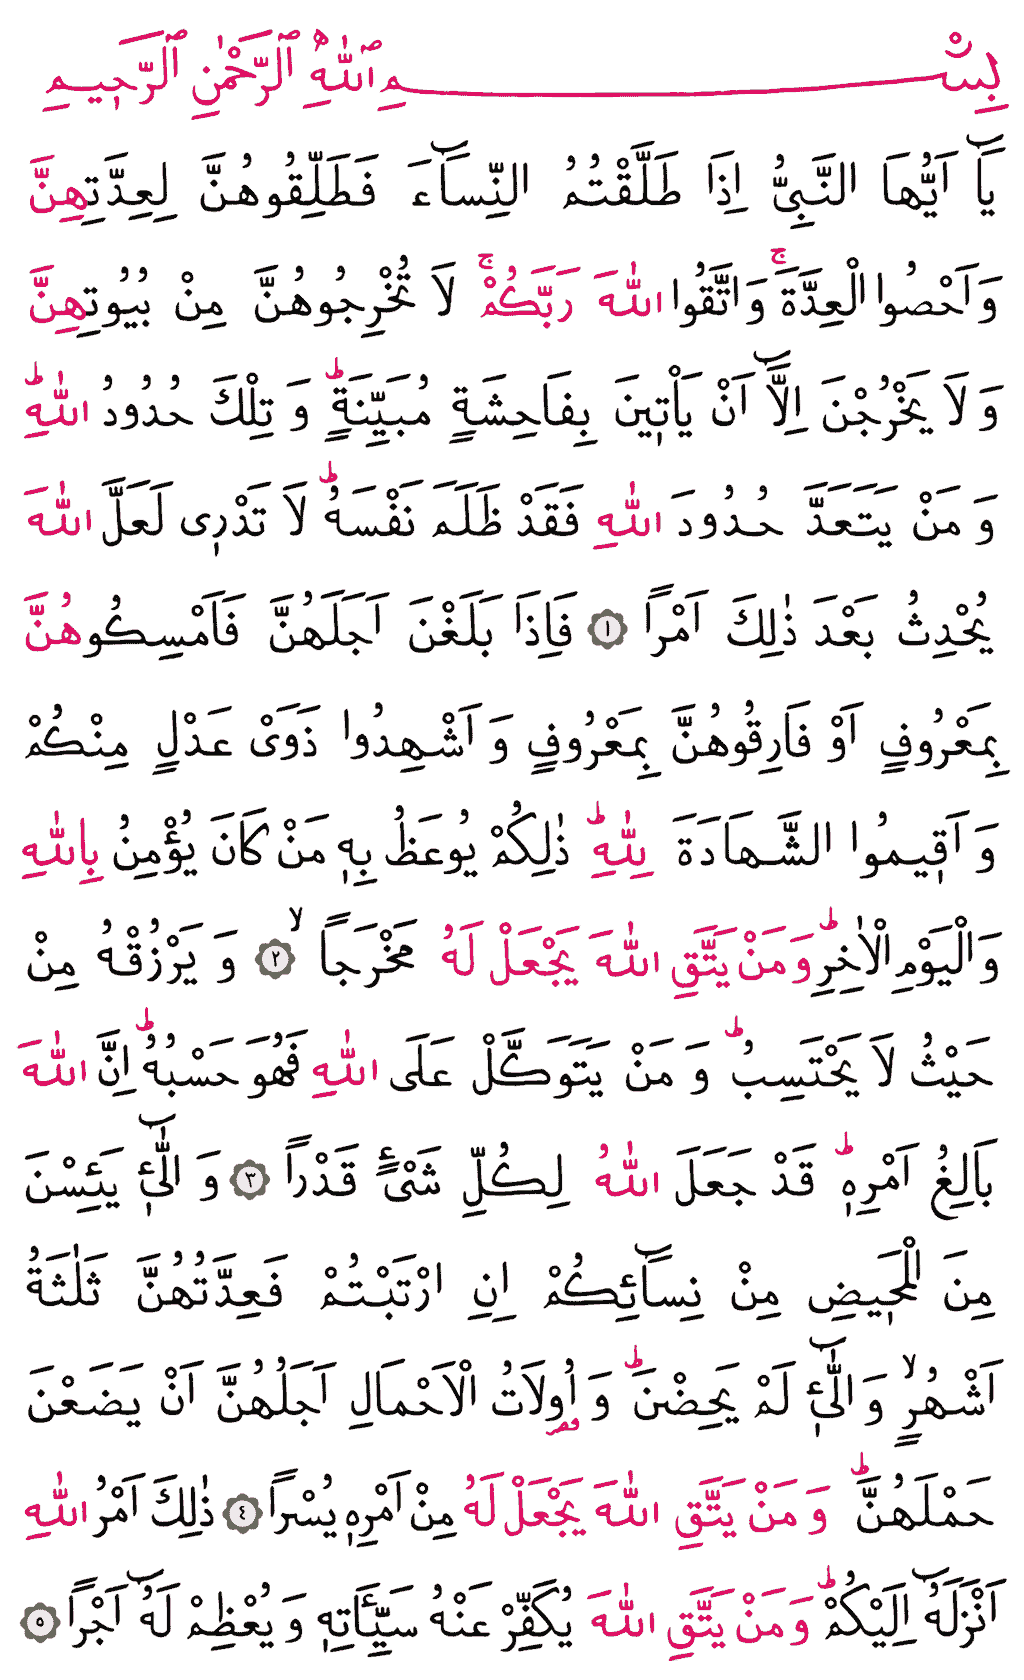 بِسْمِ اللّٰهِ الرَّحْمٰنِ الرَّحٖيمِ
يَٓا اَيُّهَا النَّبِىُّ اِذَا طَلَّقْتُمُ النِّسَٓاءَ فَطَلِّقُوهُنَّ لِعِدَّتِهِنَّ
وَاَحْصُوا الْعِدَّةَۚ وَاتَّقُوا اللّٰهَ رَبَّكُمْۚ لَا تُخْرِجُوهُنَّ مِنْ بُيُوتِهِنَّ
وَلَا يَخْرُجْنَ اِلَّٓا اَنْ يَأْتٖينَ بِفَاحِشَةٍ مُبَيِّنَةٍؕ وَتِلْكَ حُدُودُ اللّٰهِؕ
وَمَنْ يَتَعَدَّ حُدُودَ اللّٰهِ فَقَدْ ظَلَمَ نَفْسَهُؕ لَا تَدْرٖى لَعَلَّ اللّٰهَ
يُحْدِثُ بَعْدَ ذٰلِكَ اَمْراً ١ فَاِذَا بَلَغْنَ اَجَلَهُنَّ فَاَمْسِكُوهُنَّ
بِمَعْرُوفٍ اَوْ فَارِقُوهُنَّ بِمَعْرُوفٍ وَاَشْهِدُوا ذَوَىْ عَدْلٍ مِنْكُمْ
وَاَقٖيمُوا الشَّهَادَةَ لِلّٰهِؕ ذٰلِكُمْ يُوعَظُ بِهٖ مَنْ كَانَ يُؤْمِنُ بِاللّٰهِ
وَالْيَوْمِ الْاٰخِرِؕ وَمَنْ يَتَّقِ اللّٰهَ يَجْعَلْ لَهُ مَخْرَجاًۙ ٢ وَيَرْزُقْهُ مِنْ
حَيْثُ لَا يَحْتَسِبُؕ وَمَنْ يَتَوَكَّلْ عَلَى اللّٰهِ فَهُوَ حَسْبُهُؕ اِنَّ اللّٰهَ
بَالِغُ اَمْرِهٖؕ قَدْ جَعَلَ اللّٰهُ لِكُلِّ شَىْءٍ قَدْراً ٣ وَالّٰٓـٖٔى يَئِسْنَ
مِنَ الْمَحٖيضِ مِنْ نِسَٓائِكُمْ اِنِ ارْتَبْتُمْ فَعِدَّتُهُنَّ ثَلٰثَةُ
اَشْهُرٍۙ وَالّٰٓـٖٔى لَمْ يَحِضْنَؕ وَاُو۬لَاتُ الْاَحْمَالِ اَجَلُهُنَّ اَنْ يَضَعْنَ
حَمْلَهُنَّؕ وَمَنْ يَتَّقِ اللّٰهَ يَجْعَلْ لَهُ مِنْ اَمْرِهٖ يُسْراً ٤ ذٰلِكَ اَمْرُ اللّٰهِ
اَنْزَلَهُٓ اِلَيْكُمْؕ وَمَنْ يَتَّقِ اللّٰهَ يُكَفِّرْ عَنْهُ سَيِّـَٔاتِهٖ وَيُعْظِمْ لَهُٓ اَجْراً ٥